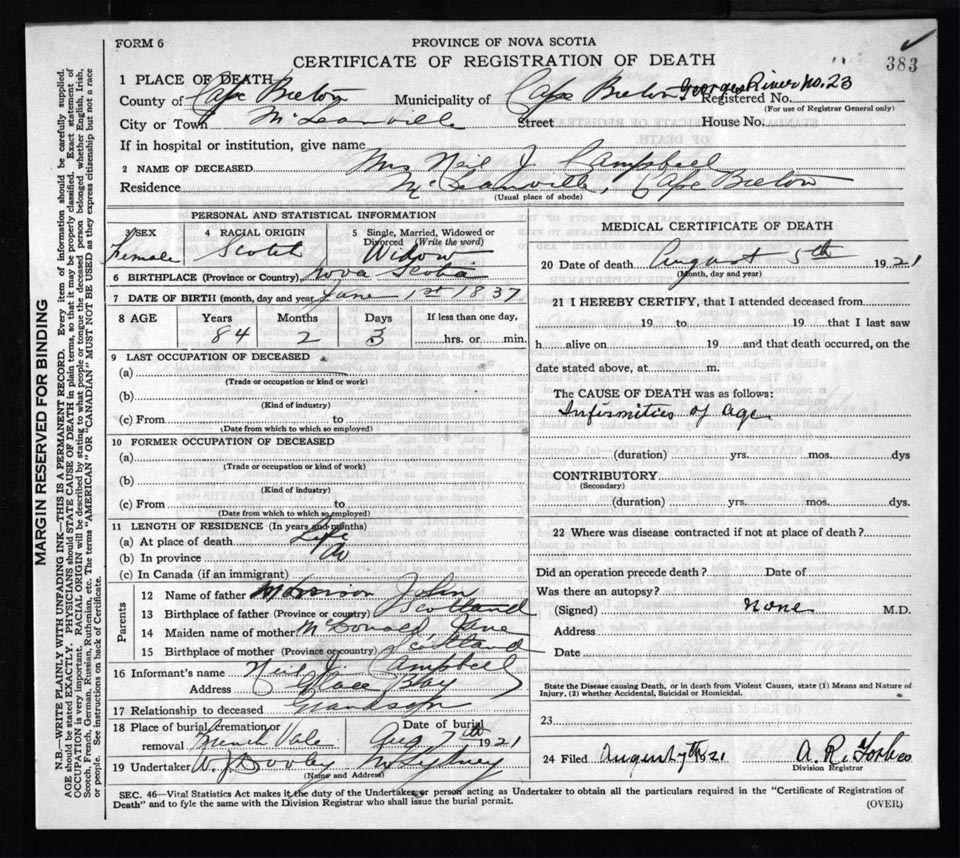 FORM 6
PROVINCE OF NOVA SCOTIA
CERTIFICATE OF REGISTRATION OF DEATH
383
1 PLACE OF DEATH
County of Cape Breton Municipality of Cape Breton Georges River No. 23 Registered No.
(For use of Registrar General only)
City or Town McLeanville Street House No.
If in hospital or institution, give name
2 NAME OF DECEASED Mrs Neil J. Campbell
Residence McLeanville, Cape Breton
(Usual place of abode)
PERSONAL AND STATISTICAL INFORMATION
3 SEX Female
4 RACIAL ORIGIN Scotch
5 Single, Married, Widowed or Divorced (Write the word) Widow
6 BIRTHPLACE (Province or Country) Nova Scotia
7 DATE OF BIRTH (month, day and year) June 1st 1837
8 AGE Years Months Days If less than one day,
84 2 3 hrs. or min.
9 LAST OCCUPATION OF DECEASED
(a)
(Trade or occupation or kind or work)
(b)
(Kind of industry)
(c) From to
(Date from which to which so employed)
10 FORMER OCCUPATION OF DECEASED
(a)
(Trade or occupation or kind of work)
(b)
(Kind of industry)
(c) From to
(Date from which to which so employed)
11 LENGTH OF RESIDENCE (In years and months)
(a) At place of death Life
(b) In province
(c) In Canada (if an immigrant)
Parents
12 Name of father Morrison John
13 Birthplace of father (Province or country) Scotland
14 Maiden name of mother McDonald, Jane
15 Birthplace of mother (Province or country) Scotland
16 Informant's name Neil J. Campbell
Address Glace Bay
17 Relationship to deceased Grandson
18 Place of burial, cremation or removal French Vale Date of burial Aug 7th 1921
19 Undertaker W. J. Dooley N Sydney
(Name and Address)
MEDICAL CERTIFICATE OF DEATH
20 Date of death August 5th 1921
(Month, day and year)
21 I HEREBY CERTIFY, that I attended deceased from
19 to 19 that I last saw
h alive on 19 and that death occurred, on the
date stated above, at m.
The CAUSE OF DEATH was as follows:
Infirmities of age
(duration) yrs. mos. dys
CONTRIBUTORY
(Secondary)
(duration) yrs. mos. dys.
22 Where was disease contracted if not at place of death?
Did an operation precede death? Date of
Was there an autopsy?
(Signed) none M.D.
Address
Date
State the Disease causing Death, or in death from Violent Causes, state (1) Means and Nature of
Injury, (2) whether Accidental, Suicidal or Homicidal.
23
24 Filed August 7th 1921 A. R. Forbes
Division Registrar
SEC. 46—Vital Statistics Act makes it the duty of the Undertaker or person acting as Undertaker to obtain all the particulars required in the "Certificate of Registration of
Death" and to fyle the same with the Division Registrar who shall issue the burial permit.
(OVER)
MARGIN RESERVED FOR BINDING
N.B.—WRITE PLAINLY WITH UNFADING INK—THIS IS A PERMANENT RECORD. Every item of information should be carefully supplied.
AGE should be stated EXACTLY. PHYSICIANS should STATE CAUSE OF DEATH in plain terms, so that it may be properly classified. Exact statement of
OCCUPATION is very important. RACIAL ORIGIN will be described by stating to what people or tongue the deceased person belonged whether English, Irish,
Scotch, French, German, Russian, Ruthenian, etc. The terms "AMERICAN" OR "CANADIAN" MUST NOT BE USED as they express citizenship but not a race
or people. See instructions on back of Certificate.